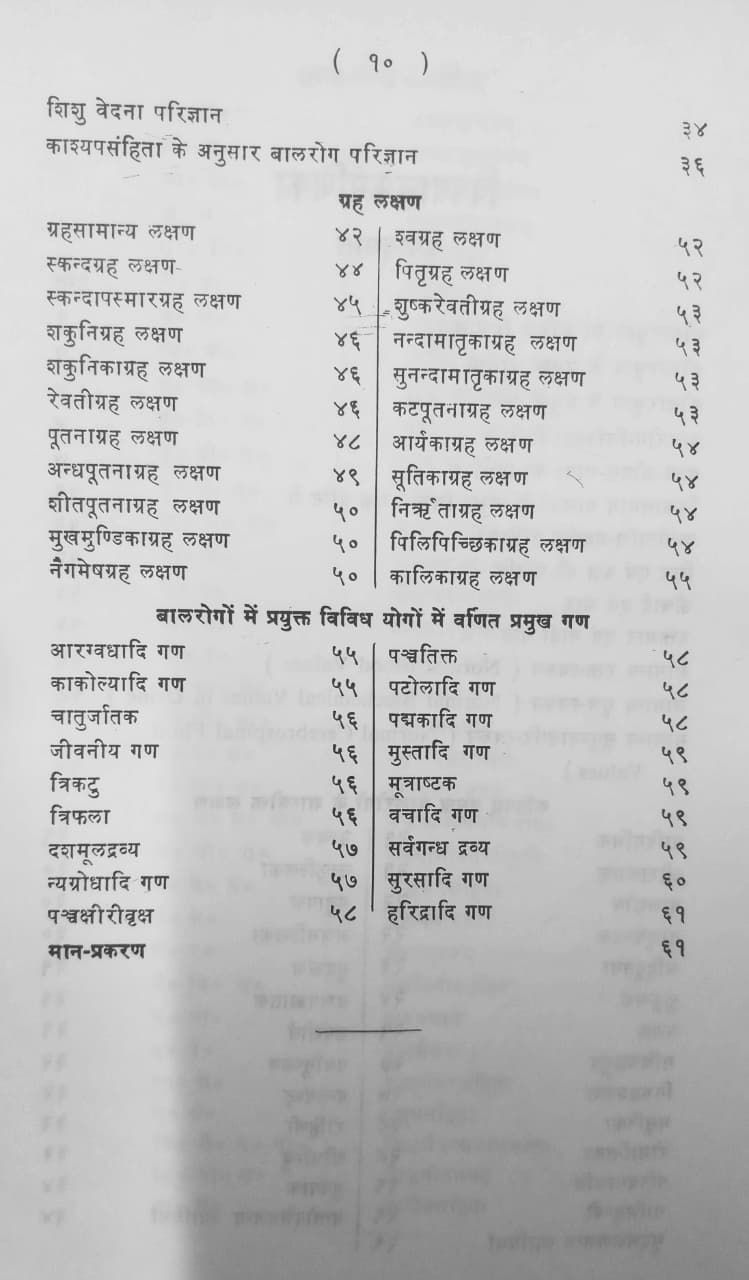 ( १० )
शिशु वेदना परिज्ञान ३४
काश्यपसंहिता के अनुसार बालरोग परिज्ञान ३६
ग्रह लक्षण
ग्रहसामान्य लक्षण ४२
स्कन्दग्रह लक्षण ४४
स्कन्दापस्मारग्रह लक्षण ४५
शकुनिग्रह लक्षण ४६
शकुनिकाग्रह लक्षण ४६
रेवतीग्रह लक्षण ४६
पूतनाग्रह लक्षण ४८
अन्धपूतनाग्रह लक्षण ४९
शीतपूतनाग्रह लक्षण ५०
मुखमुण्डिकाग्रह लक्षण ५०
नैगमेषग्रह लक्षण ५०
श्वग्रह लक्षण ५२
पितृग्रह लक्षण ५२
शुष्करेवतीग्रह लक्षण ५३
नन्दामातृकाग्रह लक्षण ५३
सुनन्दामातृकाग्रह लक्षण ५३
कटपूतनाग्रह लक्षण ५३
आर्यकाग्रह लक्षण ५४
सूतिकाग्रह लक्षण ५४
निर्ऋताग्रह लक्षण ५४
पिलिपिच्छिकाग्रह लक्षण ५४
कालिकाग्रह लक्षण ५५
बालरोगों में प्रयुक्त विविध योगों में वर्णित प्रमुख गण
आरग्वधादि गण ५५
काकोल्यादि गण ५५
चातुर्जातक ५६
जीवनीय गण ५६
त्रिकटु ५६
त्रिफला ५६
दशमूलद्रव्य ५७
न्यग्रोधादि गण ५७
पञ्चक्षीरीवृक्ष ५८
पञ्चतिक्त ५८
पटोलादि गण ५८
पद्मकादि गण ५८
मुस्तादि गण ५९
मूत्राष्टक ५९
वचादि गण ५९
सर्वगन्ध द्रव्य ५९
सुरसादि गण ६०
हरिद्रादि गण ६१
मान-प्रकरण ६१